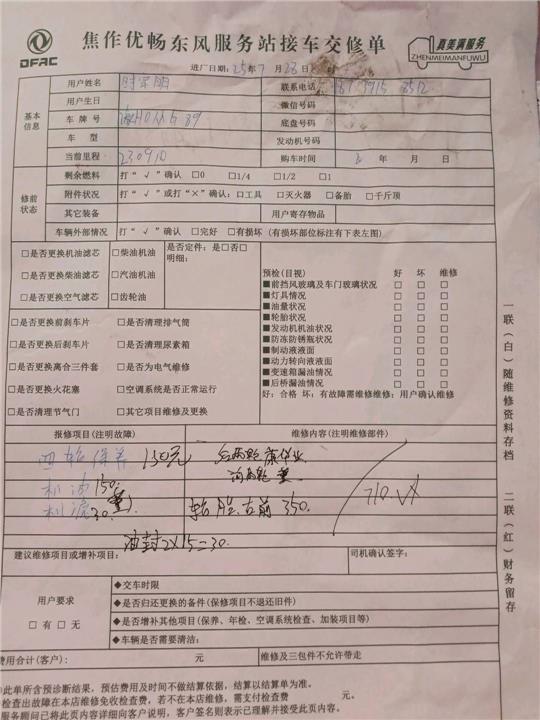 DFAC
焦作优畅东风服务站接车交修单
真美满服务
ZHENMEIMANFUWU
进厂日期：25年7月28日
用户姓名 联系电话
基本信息
用户生日 微信号码
车牌号 底盘号码
车型 发动机号码
当前里程 230910 购车时间 年 月 日
修前状态
剩余燃料 打“√”确认 □0 □1/4 □1/2 □1
附件状况 打“√”或打“×”确认：□工具 □灭火器 □备胎 □千斤顶
其它装备 用户寄存物品
车辆外部情况 打“√”确认 □完好 □有损坏（有损坏部位标注有下表左图）
□是否更换机油滤芯 □柴油机油 是否定件：是□否□
明细：
□是否更换柴油滤芯 □汽油机油
□是否更换空气滤芯 □齿轮油
预检(目视) 好 坏 维修
■前挡风玻璃及车门玻璃状况 □ □ □
■灯具情况 □ □ □
■油量状况 □ □ □
■轮胎状况 □ □ □
■发动机机油状况 □ □ □
■防冻防锈瓶状况 □ □ □
■制动液液面 □ □ □
■动力转向液液面 □ □ □
■变速箱漏油情况 □ □ □
■后桥漏油情况 □ □ □
好：合格 坏：有故障需维修维修：用户确认维修
□是否更换前刹车片 □是否清理排气筒
□是否更换后刹车片 □是否清理尿素箱
□是否更换离合三件套 □是否为电气维修
□是否更换火花塞 □空调系统是否正常运行
□是否清理节气门 □其它项目维修及更换
一联（白）随维修资料存档 二联（红）财务留存
报修项目(注明故障) 维修内容(注明维修部件)
四轮保养 150元
机油150
机滤30
轮胎右前350
710
油封2X15=30.
建议维修项目或增补项目： 司机确认签字：
用户要求
□有 □无
◆交车时限
◆是否归还更换的备件(保修项目不退还旧件)
◆是否增补其他项目(保养、年检、空调系统检查、加装项目等)
◆车辆是否需要清洁：
费用合计(客户)： 元 维修及三包件不允许带走
此单所含预诊断结果，预估费用及时间不做结算依据，结算以结算单为准。
检查出故障在本店维修免收检查费，若不在本店维修，需支付检查费 元。
服务顾问已将此页内容详细向客户说明，客户签名则表示已理解并接受此页内容。